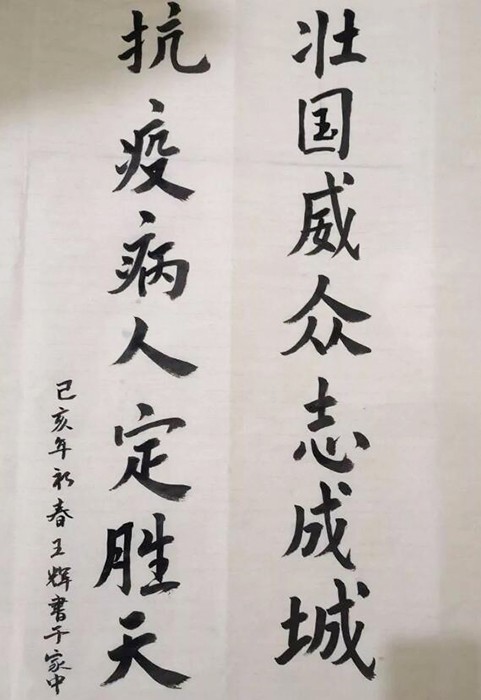 壮国威众志成城
抗疫病人定胜天
己亥年初春王辉书于家中